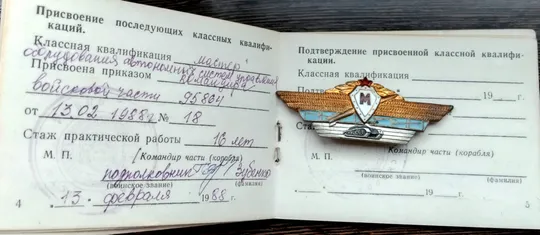 Присвоение последующих классных квалифи-
каций.
Классная квалификация мастер
оборудования автономных систем управления
Присвоена приказом командира
войсковой части 95804
от 13.02 1988г № 18
Стаж практической работы 16 лет
М. П. Командир части (корабля)
подполковник Зубенко
(воинское звание) (фамилия)
„13“ февраля 1988 г.
4
Подтверждение присвоенной классной квалифи-
кации.
Классная квалификация
19
М
М. П. Командир части (корабля)
(воинское звание) (фамилия)
19 г.
5